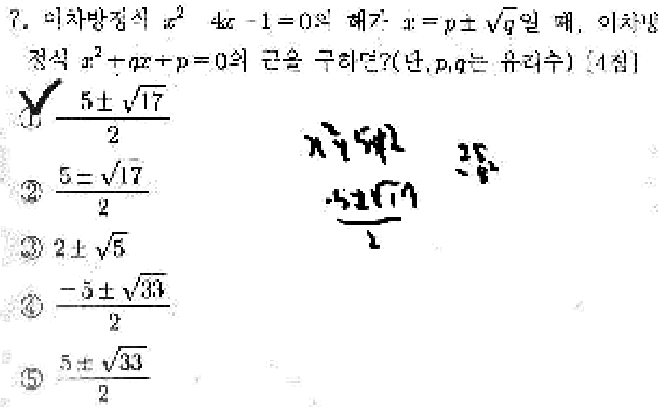 7. 이차방정식 x² 4x -1=0의 해가 x=p±√q일 때, 이차방
정식 x²+qx+p=0의 근을 구하면?(단, p,q는 유리수) [4점]
① 5±√17/2
② 5±√17/2
③ 2±√5
④ -5±√33/2
⑤ 5±√33/2
-5±√17/2